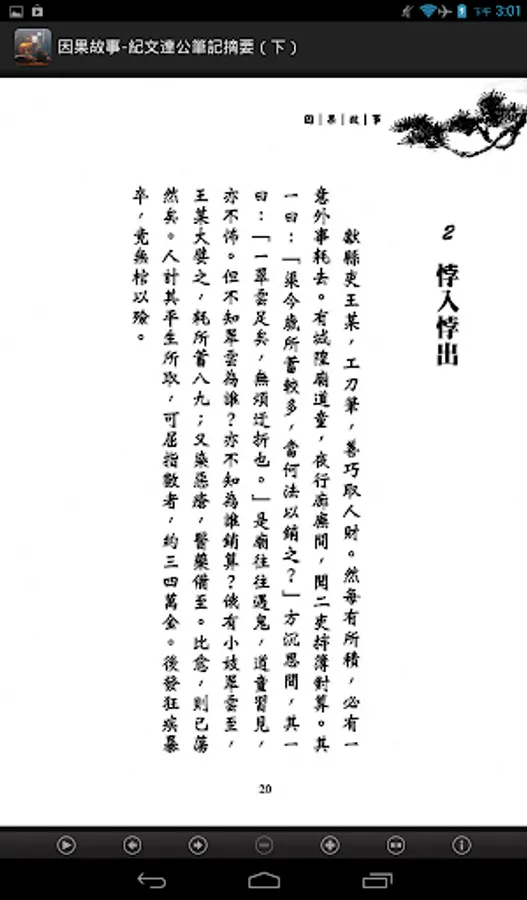 下午 3:01
因果故事-紀文達公筆記摘要（下）
因|果|故|事
2 悖入悖出
獻縣吏王某，工刀筆，善巧取人財。然每有所積，必有一
意外事耗去。有城隍廟道童，夜行廊廡間，聞二吏持簿對算。其
一曰：「渠今歲所蓄較多，當何法以銷之？」方沉思間，其一
曰：「一翠雲足矣，無煩迂折也。」是廟往往遇鬼，道童習見，
亦不怖。但不知翠雲為誰？亦不知為誰銷算？俄有小妓翠雲至，
王某大嬖之，耗所蓄八九；又染惡瘡，醫藥備至。比愈，則已蕩
然矣。人計其平生所取，可屈指數者，約三四萬金。後發狂疾暴
卒，竟無棺以殮。
20